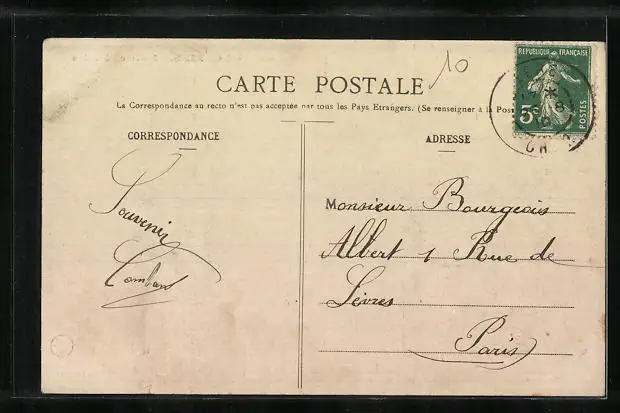 10
CARTE POSTALE
La Correspondance au recto n'est pas acceptée par tous les Pays Etrangers. (Se renseigner à la Pos
CORRESPONDANCE
ADRESSE
REPUBLIQUE FRANÇAISE
5c
POSTES
Souvenir
Monsieur Bourgeois
Albert 1 Rue de
Sèvres
Paris